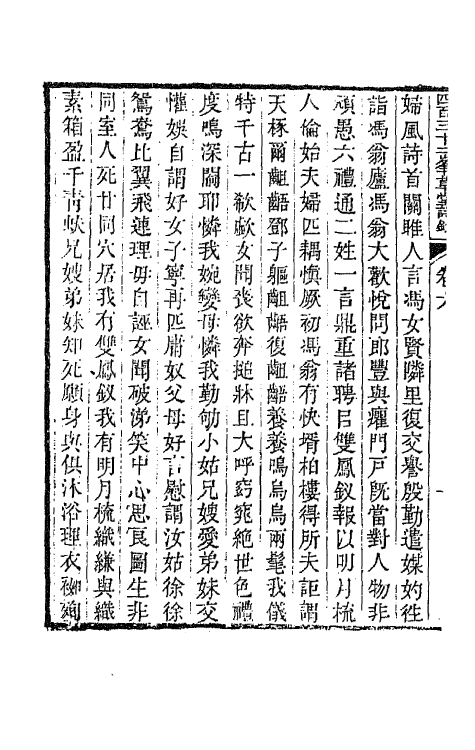 四百三十二峯草堂詩鈔 卷六
婦風詩首關雎人言馮女賢隣里復交譽殷勤遣媒妁徃
詣馮翁廬馮翁大歡悅問郎豐與癯門戸旣當對人物非
頑愚六禮通二姓一言鼎重諸聘㠯雙鳳釵報以明月梳
人倫始夫婦匹耦愼厥初馮翁有快壻柏樓得所夫詎謂
天椓爾齟齬鄧子軀齟齬復齟齬養養鳴烏烏兩髦我儀
特千古一欷歔女聞喪欲奔搥牀且大呼窈窕絶世色禮
度嗚深閨耶憐我婉孌母憐我勤劬小姑兄嫂愛弟妹交
懽娛自謂好女子寧再匹庸奴父母好言慰謂汝姑徐徐
鴛鴦比翼飛連理毋自誣女聞破涕笑中心思良圖生非
同室人死廿同穴居我有雙鳳釵我有明月梳織縑與織
素箱盈千靑蚨兄嫂弟妹知死願身與俱沐浴理衣裯殉